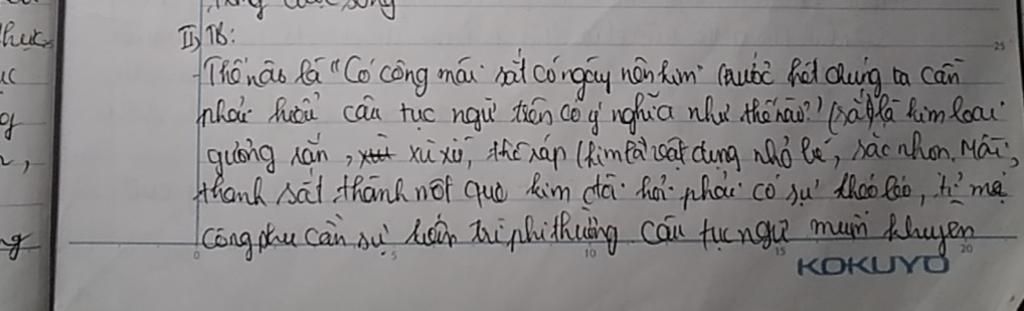 II, TB:
Thế nào là "Có công mài sắt có ngày nên kim" trước hết chúng ta cần
phải hiểu câu tục ngữ trên có ý nghĩa như thế nào? (sắt) là kim loại
cứng rắn, xù xì, thô ráp (kim là vật dụng nhỏ bé, sắc nhọn. Mài
thanh sắt thành một que kim đòi hỏi phải có sự khéo léo, tỉ mỉ
công phu cần sự kiên trì phi thường. Câu tục ngữ muốn khuyên
KOKUYO